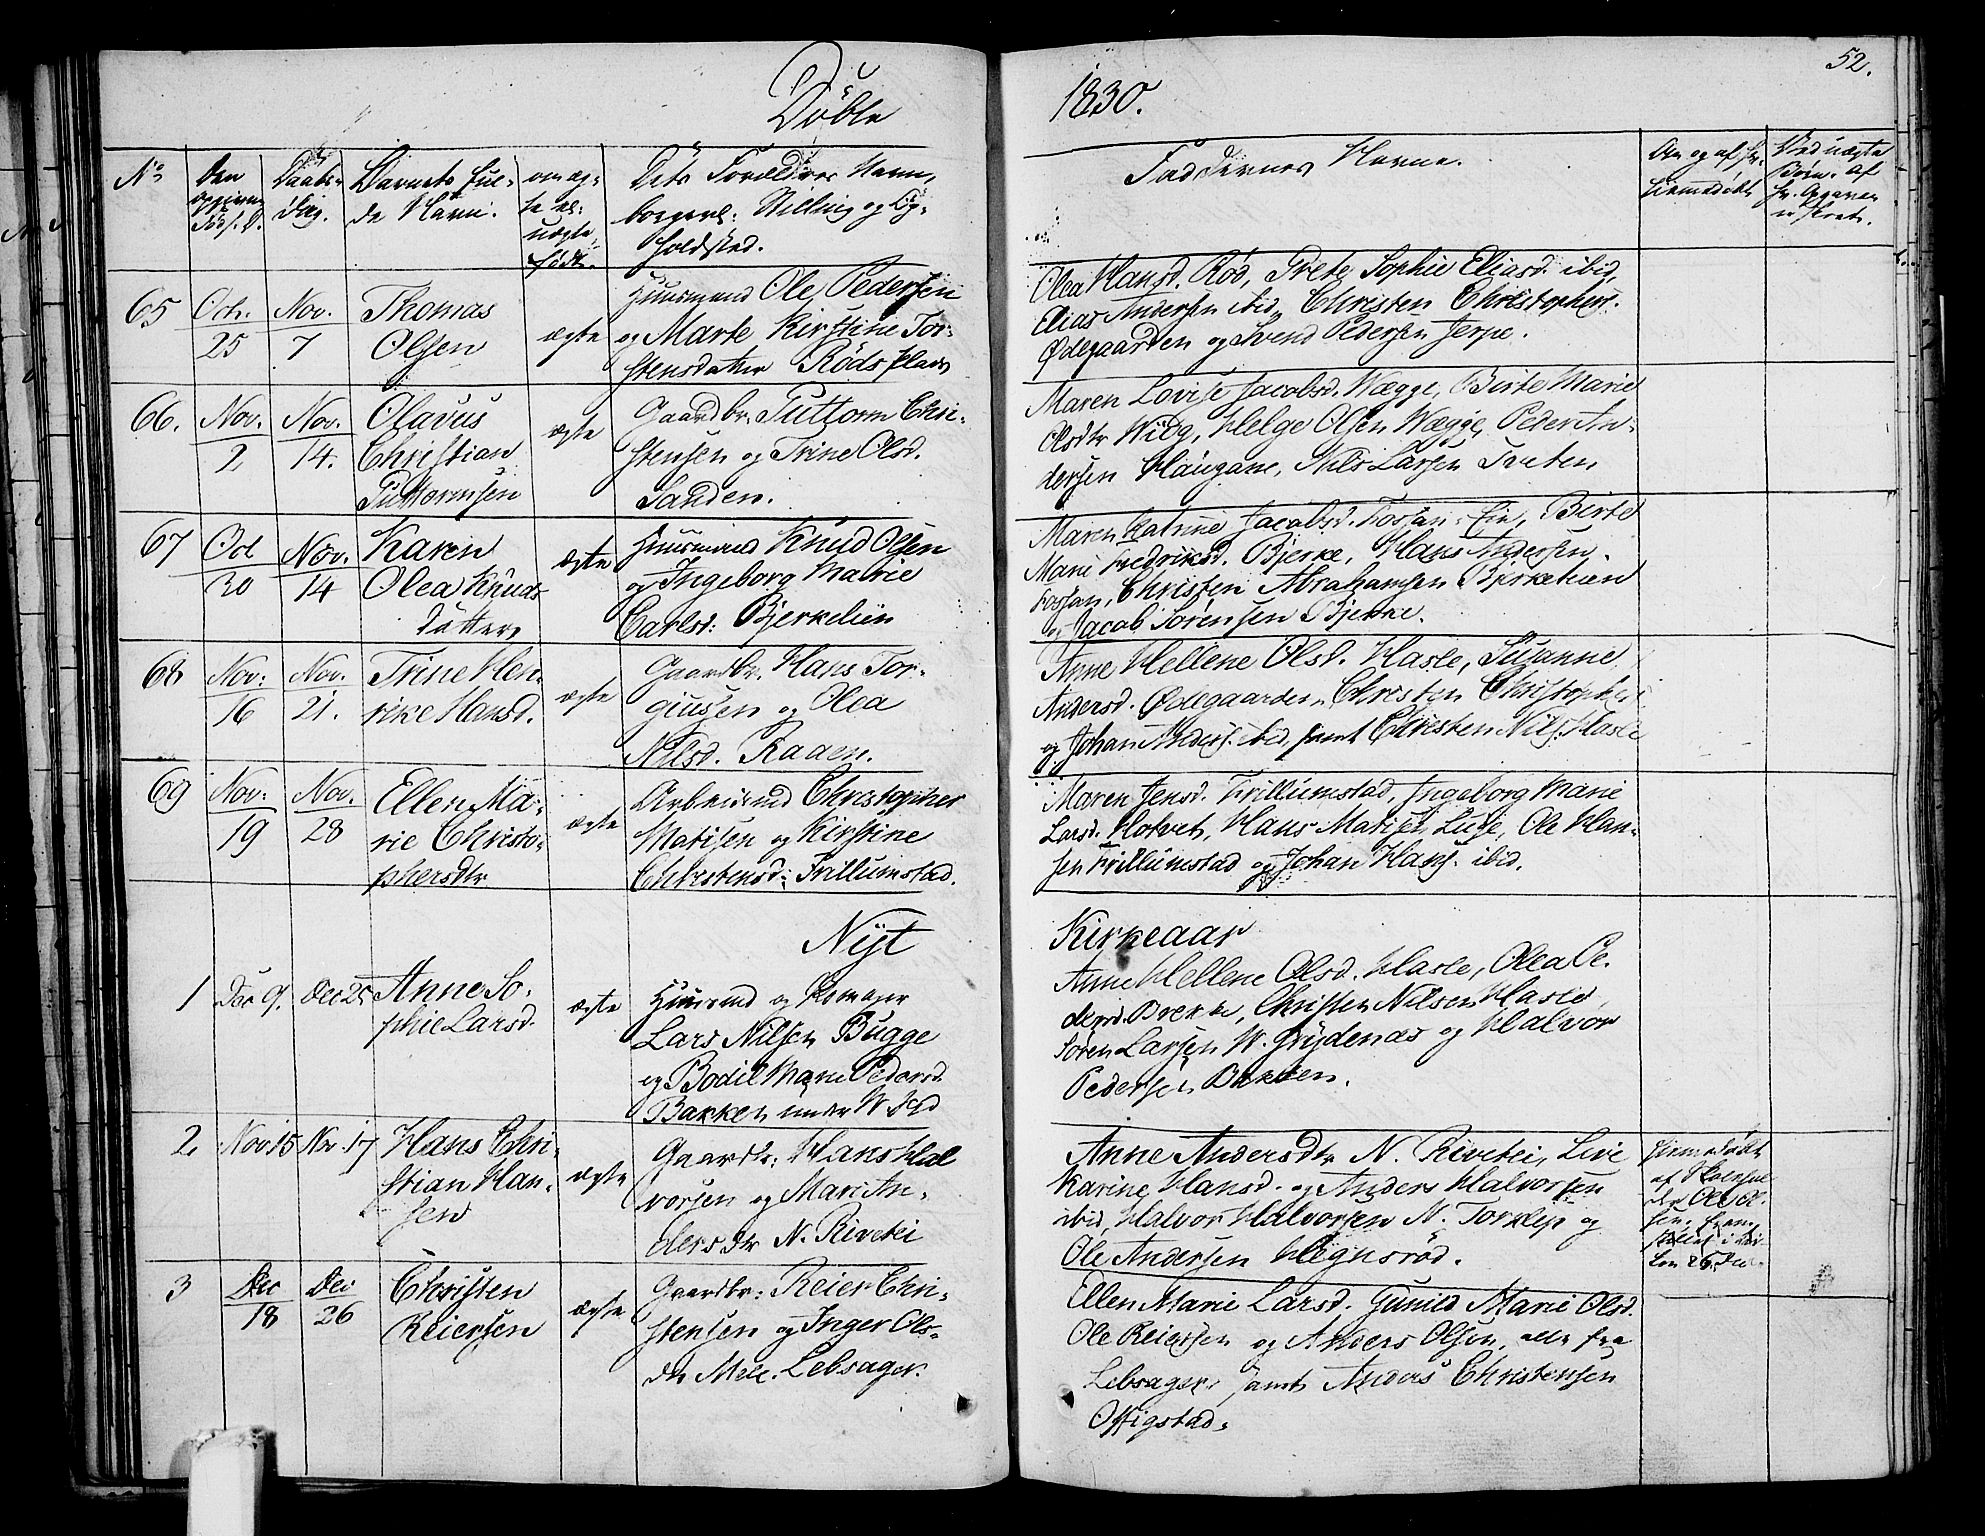 52.
Döbte
1830.
No
Den
Födsl. D.
Daabs-
dag.
Barnets ful-
de Navn.
om æg-
te el.
uægte
födt.
Dets Forældres Navn,
borgerl: Stilling og Op-
holdsted.
Faddernes Navne.
Om og af hv.
hiemmedöbt
Ved uægte
Börn. af
65
Oct.
25
Nov.
7
Thomas
Olsen
ægte
Huusmand Ole Pedersen
og Marte Kirstine Tor-
stensdatter Röds plads
Olea Hansd. Röd, Grete Sophie Eliasd. ibid,
Elias Andersen ibid, Christen Christophers.
Ödegaarden og Svend Pedersen Jerpe.
66.
Nov.
2
Nov.
14.
Olavus
Christian
Guttormsen
ægte
Gaardbr. Guttorm Chri-
stensen og Trine Olsd.
Sanden.
Maren Lovise Jacobsd. Wægge, Birte Marie
Olsdtr Wiig, Helge Olsen Wægge, Peder An-
dersen Haugane, Nils Larsen Tveten
67
Oct
30
Nov.
14
Karen
Olea Knuds
datter
ægte
Huusmand Knud Olsen
og Ingeborg Marie
Carlsd: Bjerkeliin
Maren Katrine Jacobsd. Fossan, Birte
Marie Fredriksd. Bjerke, Hans Andersen
Fossan, Christen Abrahamsen Bjerkelien
og Jacob Sörensen Bjerke.
68
Nov:
16
Nov.
21.
Trine Hen-
rike Hansd.
ægte
Gaardbr. Hans Tor-
giussen og Olea
Nilsd. Raaen.
Anne Hellene Olsd. Hasle, Susanne
Andersd. Ödegaarden, Christen Christophers
og Johan Anders. ibid samt Christen Nils. Hasle
69
Nov:
19
Nov.
28
Ellen Ma-
rie Christo-
phersdtr
ægte
Arbeidsmd Christopher
Matisen og Kirstine
Christensd: Trillumstad.
Maren Jensd. Trillumstad, Ingeborg Marie
Larsd. Hotvet, Hans Matisen Lufe, Ole Han-
sen Trillumstad og Johan Hans. ibid.
Nyt
Kirkeaar
1
Dec 9.
Dec 25
Anne So-
phie Larsd.
ægte
Huusmd og Skomager
Lars Nilsen Bugge
og Bodil Marie Pedersd.
Bakken under W.
Anne Hellene Olsd. Hasle, Olea Pe-
dersd. Brekke, Christen Nilsen Hasle,
Sören Larsen W. Grydenæs og Halvor
Pedersen Bakken.
2
Nov 15
Nov. 17
Hans Chri-
stian Han-
sen
ægte
Gaardbr: Hans Hal
vorsen og Mari An-
dersdtr N. Rivetei
Anne Andersdtr N. Rivetei, Live
Karine Hansd. og Anders Halvorsen
ibid, Halvor Halvorsen N. Torklip og
Ole Andersen Hegnsröd.
hiemmedöbt
af Skolehol
der Ole Ol-
sen, frem
stillet i Kir-
ken 26 Dec.
3
Dec
18
Dec
26
Christen
Reiersen
ægte
Gaardbr: Reier Chri-
stensen og Inger Ols-
dtr Mell. Lebsager.
Ellen Marie Larsd. Gunild Marie Olsd.
Ole Reiersen og Anders Olsen, alle fra
Lebsager, samt Anders Christensen
Offigstad.